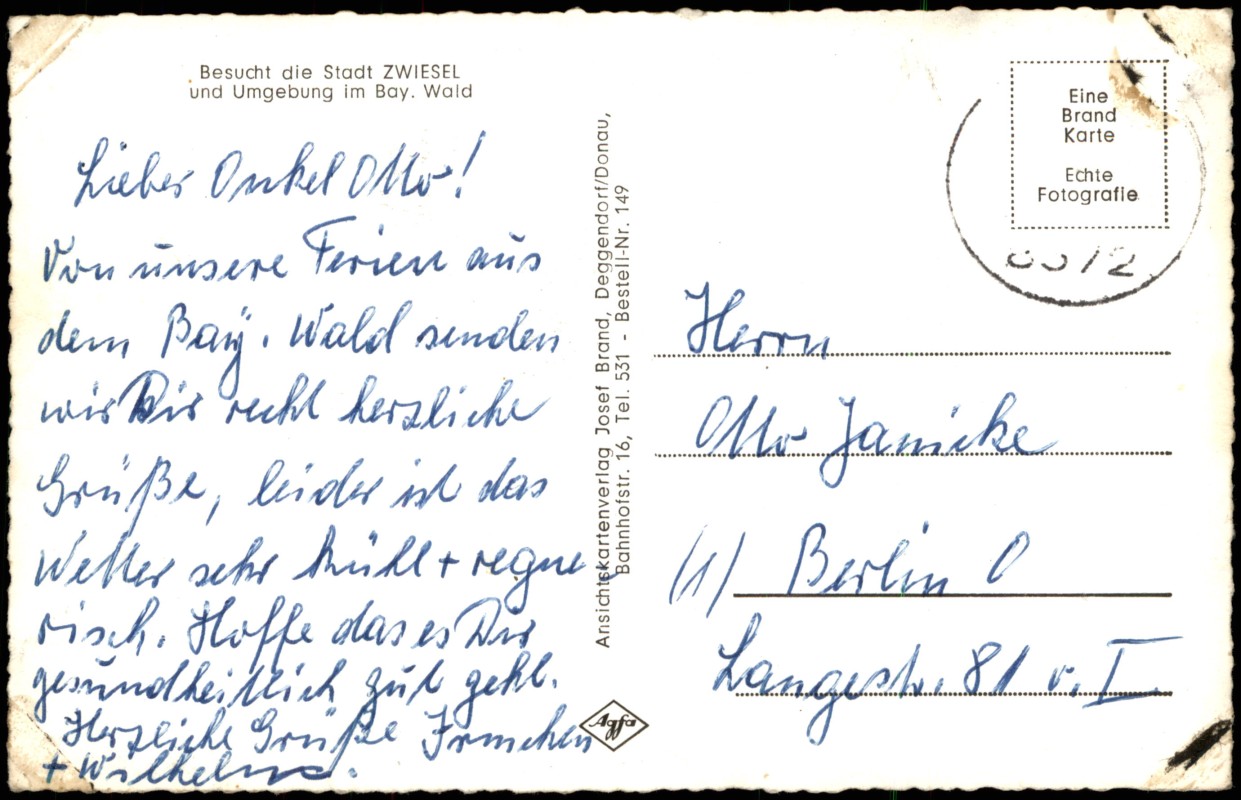 Besucht die Stadt ZWIESEL
und Umgebung im Bay. Wald
Lieber Onkel Otto!
Von unsere Ferien aus
dem Bay. Wald senden
wir Dir recht herzliche
Grüße, leider ist das
Wetter sehr kühl + regne
risch. Hoffe das es Dir
gesundheitlich gut geht.
Herzliche Grüße Irmchen
+ Wilhelm.
Ansichtskartenverlag Josef Brand, Deggendorf/Donau,
Bahnhofstr. 16, Tel. 531 - Bestell-Nr. 149
Agfa
Eine
Brand
Karte
Echte
Fotografie
Herrn
Otto Janicke
(1) Berlin O
Langestr. 81 v. I